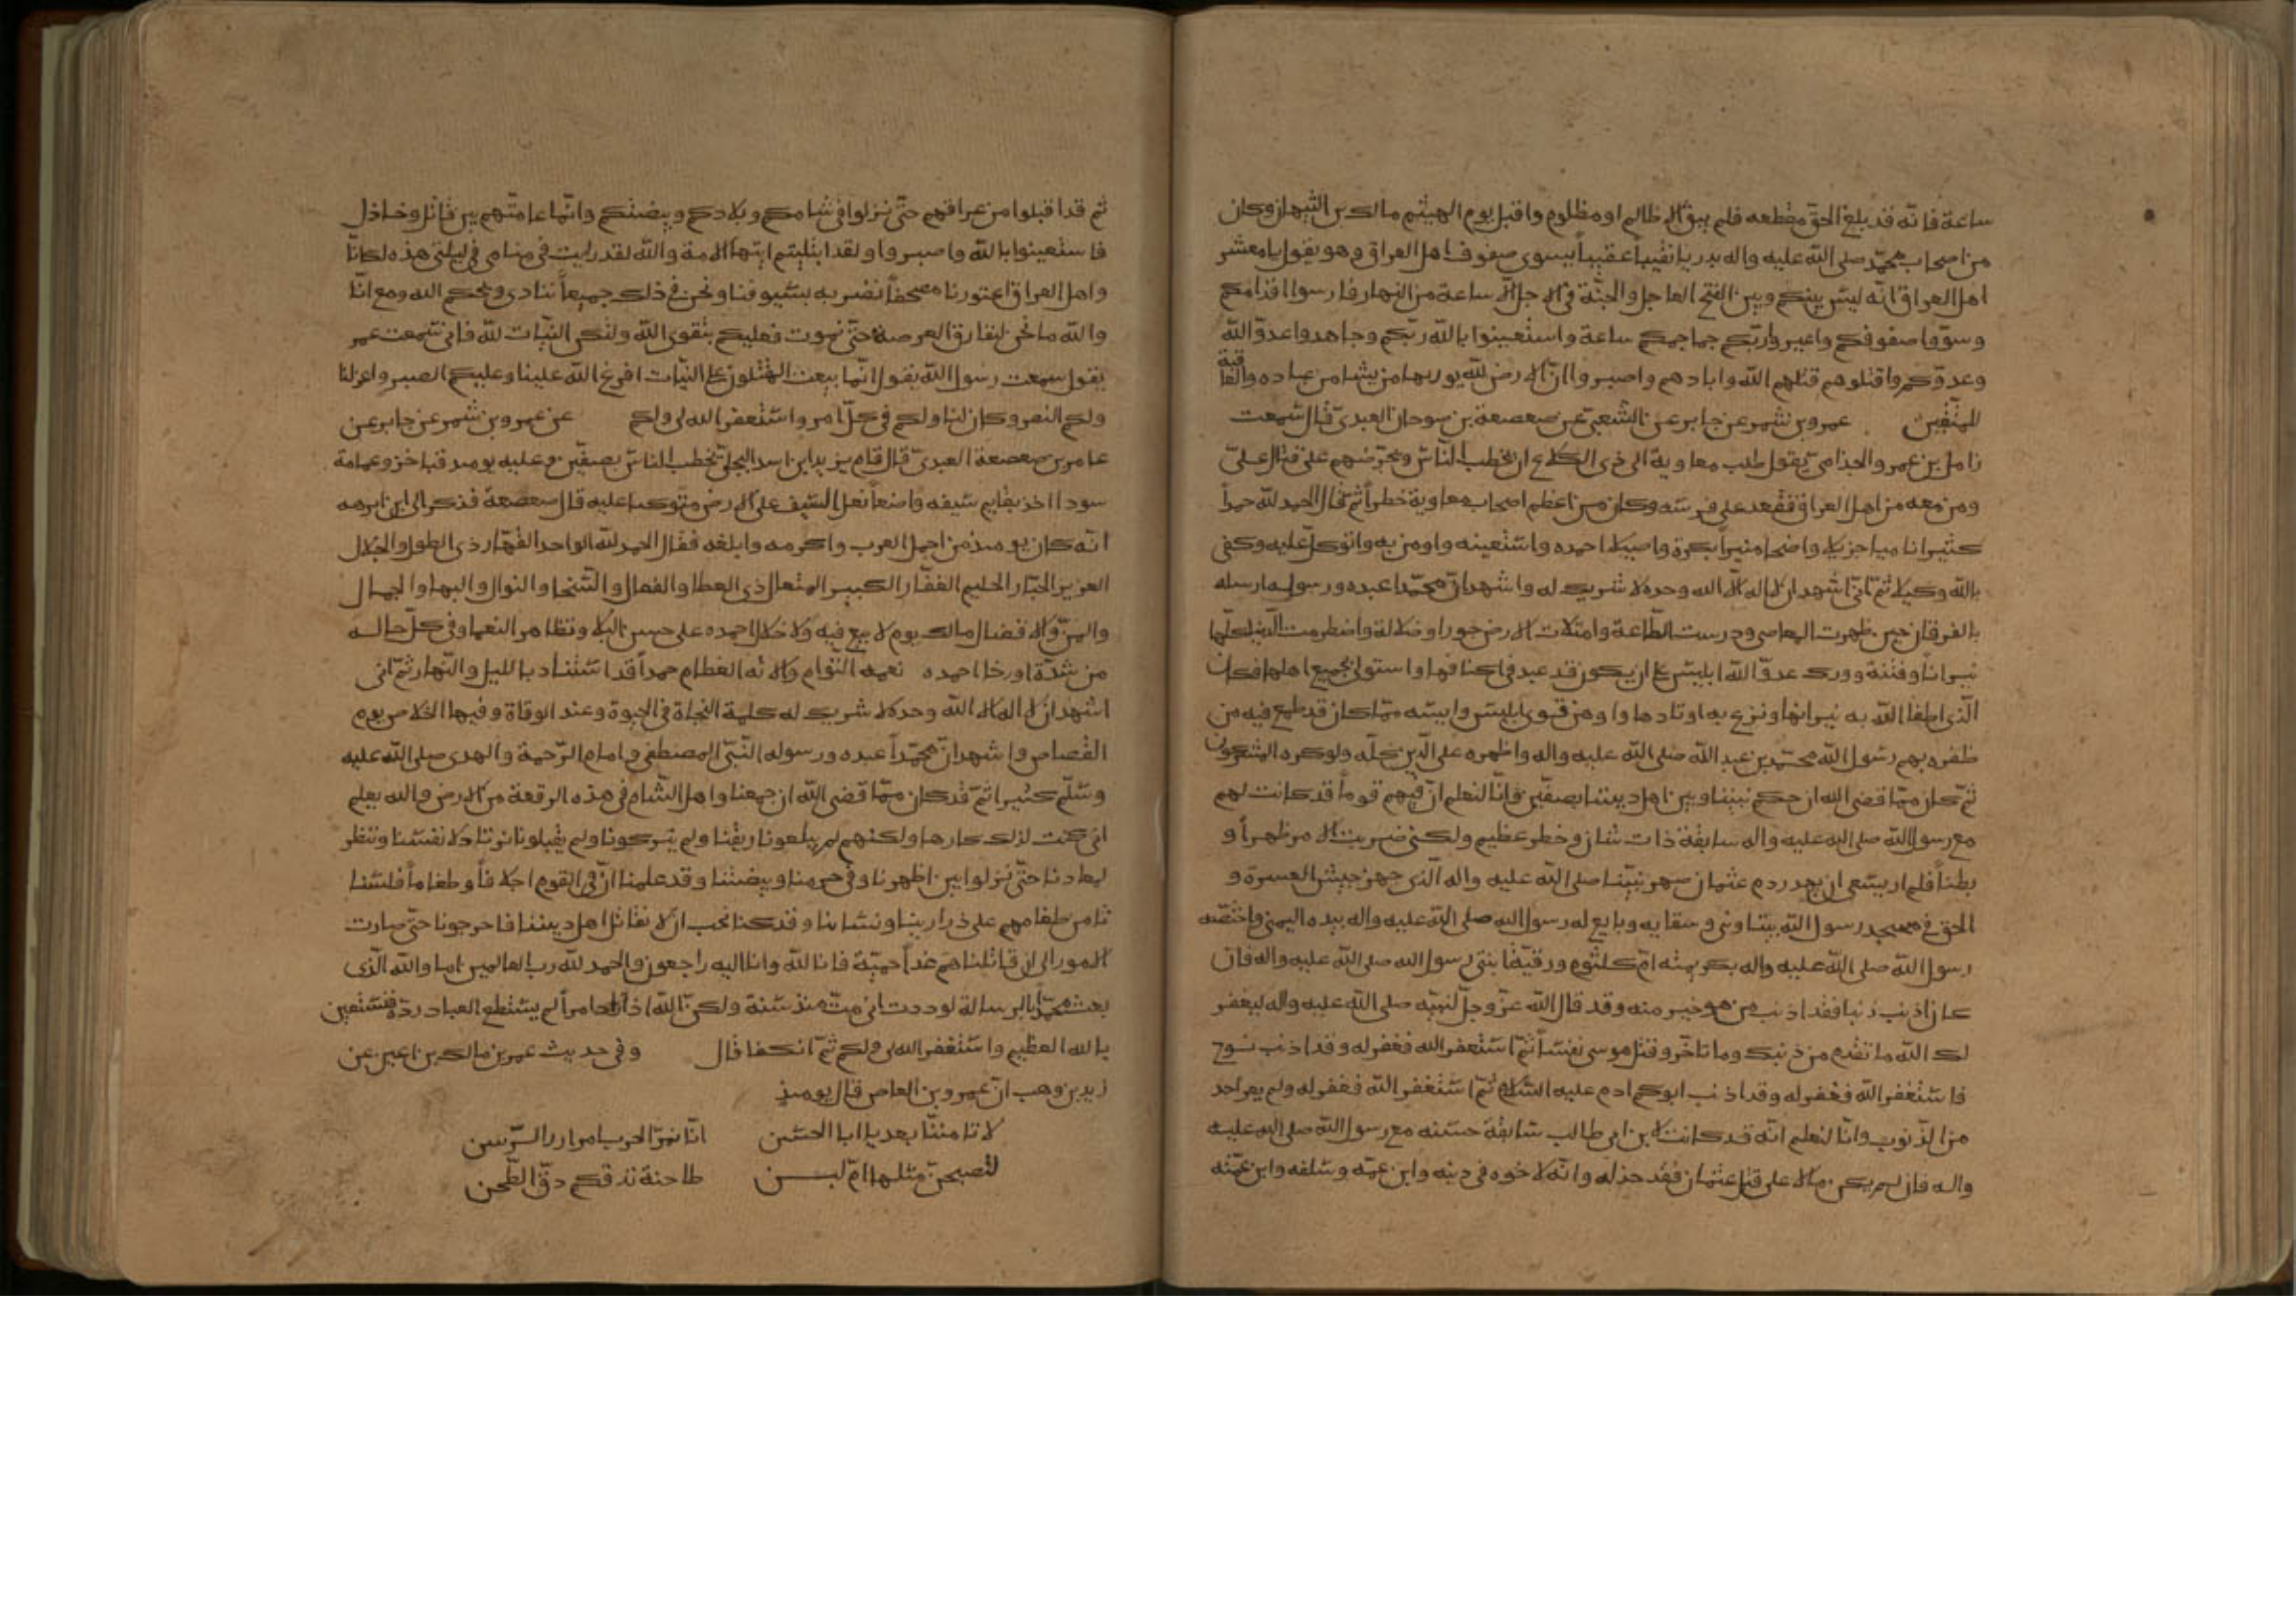 ساعة فانه قد بلغ الحق مقطعه فلم يبق الا ظالم او مظلوم واقبل يوم الهيثم مالك بن التيهان وكان
من اصحاب محمد صلى الله عليه واله بدريا نقيباً عقبياً يسوى صفوف اهل العراق وهو يقول يا معشر
اهل العراق انه ليس بينكم وبين الفتح العاجل والجنة في الاجل الا ساعة من النهار فارسوا اقدامكم
وسووا صفوفكم واعيروا ربكم جماجمكم ساعة واستعينوا بالله ربكم وجاهدوا عدو الله
وعدوكم واقتلوهم قتلهم الله وابادهم واصبروا ان الارض لله يورثها من يشا من عباده والعاقبة
للمتقين عمرو بن شمر عن جابر عن الشعبي عن صعصعة بن سوحان العبدي قال سمعت
زامل بن عمرو الجذامي يقول طلب معاوية الى ذى الكلاع ان يخطب الناس ويحرضهم على قتال علي
ومن معه من اهل العراق فقعد على فرسه وكان من اعظم اصحاب معاوية خطراً ثم قال الحمد لله حمداً
كثيرا ناميا جزيلا واضحا منيراً بكرة واصيلا احمده واستعينه واومن به واتوكل عليه وكفى
بالله وكيلا ثم انى اشهد ان لا اله الا الله وحده لا شريك له واشهد ان محمدا عبده ورسوله ارسله
بالفرقان حين ظهرت المعاصى ودرست الطاعة وامتلات الارض جورا وضلالة واضطرمت الدنيا كلها
نيرانا وفتنة وورك عدو الله ابليس على ان يكون قد عبد فى اكنافها واستولى بجميع اهلها فكان
الذى اطفا الله به نيرانها ونزع به اوتادها واوهن قوى ابليس وايسه مما كان قد طمع فيه من
ظفره بهم رسول الله محمد بن عبد الله صلى الله عليه واله واظهره على الدين كله ولو كره المشركون
ثم كان مما قضى الله ان جمع بيننا وبين اهل ديننا بصفين وانا لنعلم ان فيهم قوماً قد كانت لهم
مع رسول الله صلى الله عليه واله سابقة ذات شان وخطر عظيم ولكنى ضربت الامر ظهراً و
بطناً فلم ار يسعنى ان يهدر دم عثمان صهر نبينا صلى الله عليه واله الذى جهز جيش العسرة و
الحق فى مسجد رسول الله بيتا وبنى سقاية وبايع له رسول الله صلى الله عليه واله بيده اليمنى واختصه
رسول الله صلى الله عليه واله بكريمته ام كلثوم ورقية ابنتى رسول الله صلى الله عليه واله فان
كان اذنب ذنبا فقد اذنب من هو خير منه وقد قال الله عز وجل لنبيه صلى الله عليه واله ليغفر
لك الله ما تقدم من ذنبك وما تاخر وقتل موسى نفساً ثم استغفر الله فغفر له وقد اذنب نوح
فاستغفر الله فغفر له وقد اذنب ابوكم ادم عليه السلام ثم استغفر الله فغفر له ولم يعر احد
من الذنوب وانا لنعلم انه قد كانت لابن ابى طالب سابقة حسنه مع رسول الله صلى الله عليه
واله فان لم يكن مالا على قتل عثمان فقد خذله وانه لاخوه فى دينه وابن عمه وسلفه وابن عمته
ثم قد اقبلوا من عراقهم حتى نزلوا فى شامكم وبلادكم وبيضتكم وانما عامتهم بين قاتل وخاذل
فاستعينوا بالله واصبروا ولقد ابتليتم ايتها الامة والله لقد رايت فى منامى فى ليلتى هذه لكانا
واهل العراق اعتورنا مصحفاً نضربه بسيوفنا ونحن فى ذلك جميعاً ننادى ويحكم الله ومع انا
والله ما نحن لنفارق العرصة حتى نموت فعليكم بتقوى الله ولتكن النيات لله فانى سمعت عمر
يقول سمعت رسول الله يقول انما يبعث المقتتلون على النيات افرغ الله علينا وعليكم الصبر واعز لنا
ولكم النصر وكان لنا ولكم فى كل امر واستغفر الله لى ولكم عن عمرو بن شمر عن جابر عن
عامر بن صعصعة العبدى قال قام يزيد ابن اسد البجلى يخطب الناس بصفين وعليه يومئذ قبا خز وعمامة
سودا اخذ بقايم سيفه واضعاً نعل السيف على الارض متوكئا عليه قال صعصعة فذكر الى ابن ابرهه
انه كان يومئذ من اجمل العرب واكرمه وابلغه فقال الحمد لله الواحد القهار ذى الطول والجلال
العزيز الجبار الحليم الغفار الكبير المتعال ذى العطا والفعال والسخا والنوال والبها والجمال
والمن والافضال مالك يوم لا بيع فيه ولا خلال احمده على حسن البلا وتظاهر النعما وفى كل حاله
من شدة او رخا احمده نعمه التوام والائه العظام حمداً قد استناد بالليل والنهار ثم انى
اشهد ان لا اله الا الله وحده لا شريك له كلمة النجاة فى الحيوة وعند الوفاة وفيها الخلاص يوم
القصاص واشهد ان محمداً عبده ورسوله النبى المصطفى وامام الرحمة والهدى صلى الله عليه
وسلم كثيرا ثم قد كان مما قضى الله ان جمعنا واهل الشام فى هذه الرقعة من الارض والله يعلم
انى كنت لذلك كارها ولكنهم لم يبلعونا ريقنا ولم يتركونا ولم يقبلونا نرتاد لانفسنا وننظر
لمعادنا حتى نزلوا بين اظهرنا وفى حرمنا وبيضتنا وقد علمنا ان فى القوم اجلافاً وطغاماً فلسنا
نامن طغامهم على ذرارينا ونسائنا وقد كنا نحب ان لا نقاتل اهل ديننا فاحرجونا حتى صارت
الامور الى ان قاتلناهم غداً حمية فانا لله وانا اليه راجعون والحمد لله رب العالمين اما والله الذى
بعث محمداً بالرسالة لوددت انى مت منذ سنة ولكن الله اذا اراد امراً لم يستطع العباد رده فنستعين
بالله العظيم واستغفر الله لى ولكم ثم انكفا قال وفى حديث عمر بن مالك بن اعين عن
زيد بن وهب ان عمرو بن العاص قال يومئذ
لا تامننا بعد يا ابا الحسن انا نمر الحرب امرار الرسن
لتصبحن مثلها ام لبن طاحنة تدقكم دق الطحن